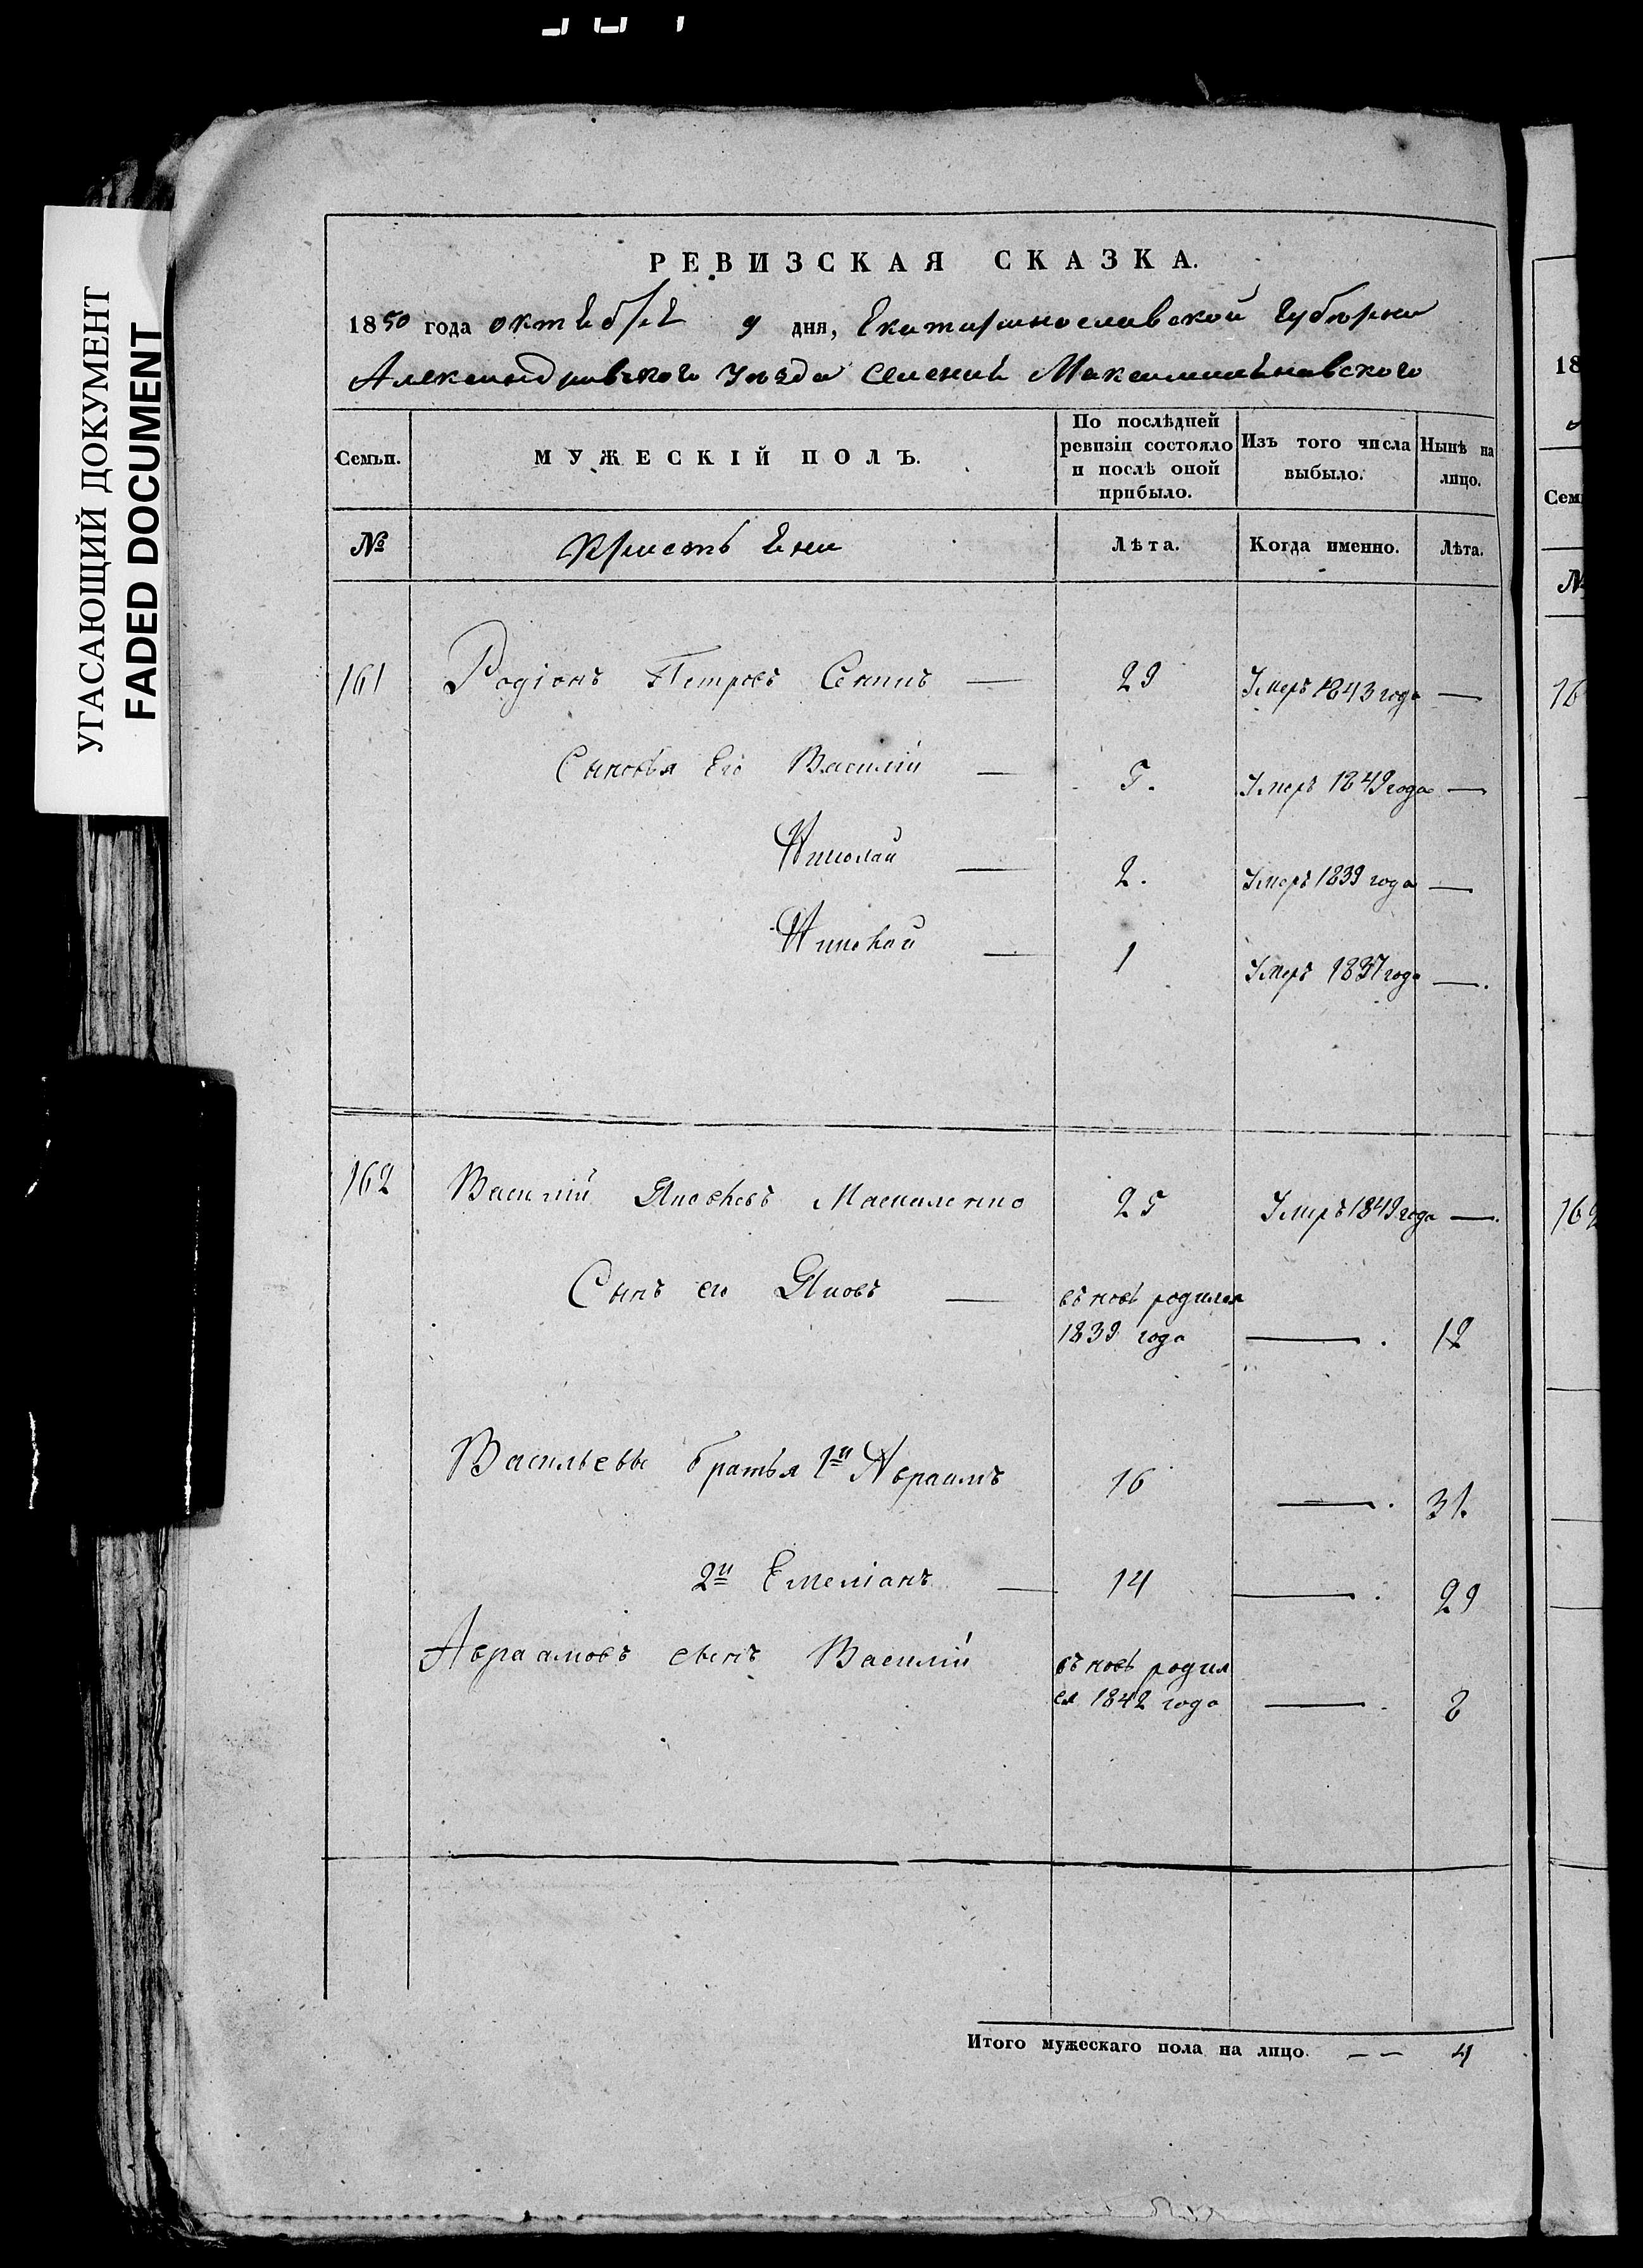 УГАСАЮЩИЙ ДОКУМЕНТ
FADED DOCUMENT
РЕВИЗСКАЯ СКАЗКА.
1850 года октября 9 дня, Екатеринославской Губерни
Александровского Уезда селения Максимильяновского
Семьи. МУЖЕСКІЙ ПОЛЪ. По послѣдней ревизіи состояло и послѣ оной прибыло. Изъ того числа выбыло. Нынѣ на лицо.
№ Крестьяни Лѣта. Когда именно. Лѣта.
161 Родіонъ Петровъ — 29 Умеръ 1843 года —
Сыновья Его Василій — 5. Умеръ 1849 года —
Николай — 2. Умеръ 1839 года —
— 1 Умеръ 1837 года —.
162 Василій Яковлевъ 25 Умеръ 1849 года —.
Сынъ его Яковъ — въновѣ родился
1839 года —. 12
Васильевы братья 1й Авраамъ 16 —. 31.
2й Емеліанъ — 14 —. 29
Авраамовъ сынъ Василій въновѣ родил
ся 1842 года —. 8
Итого мужескаго пола на лицо. — — 4
18
Сем
№
16
162